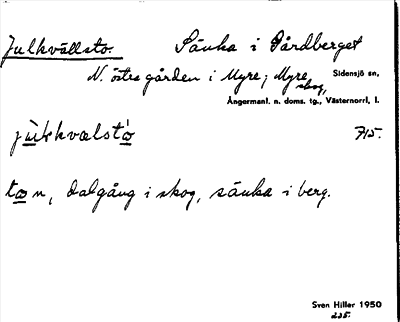 Julkvällsto. Sänka i Gårdberget
N. östra gården i Myre; Myre skog, Sidensjö sn,
Ångermanl. n. doms. tg., Västernorrl, l.
jùkkvalstò 715.
tɷn, dalgång i skog, sänka i berg.
Sven Hiller 1950
225.